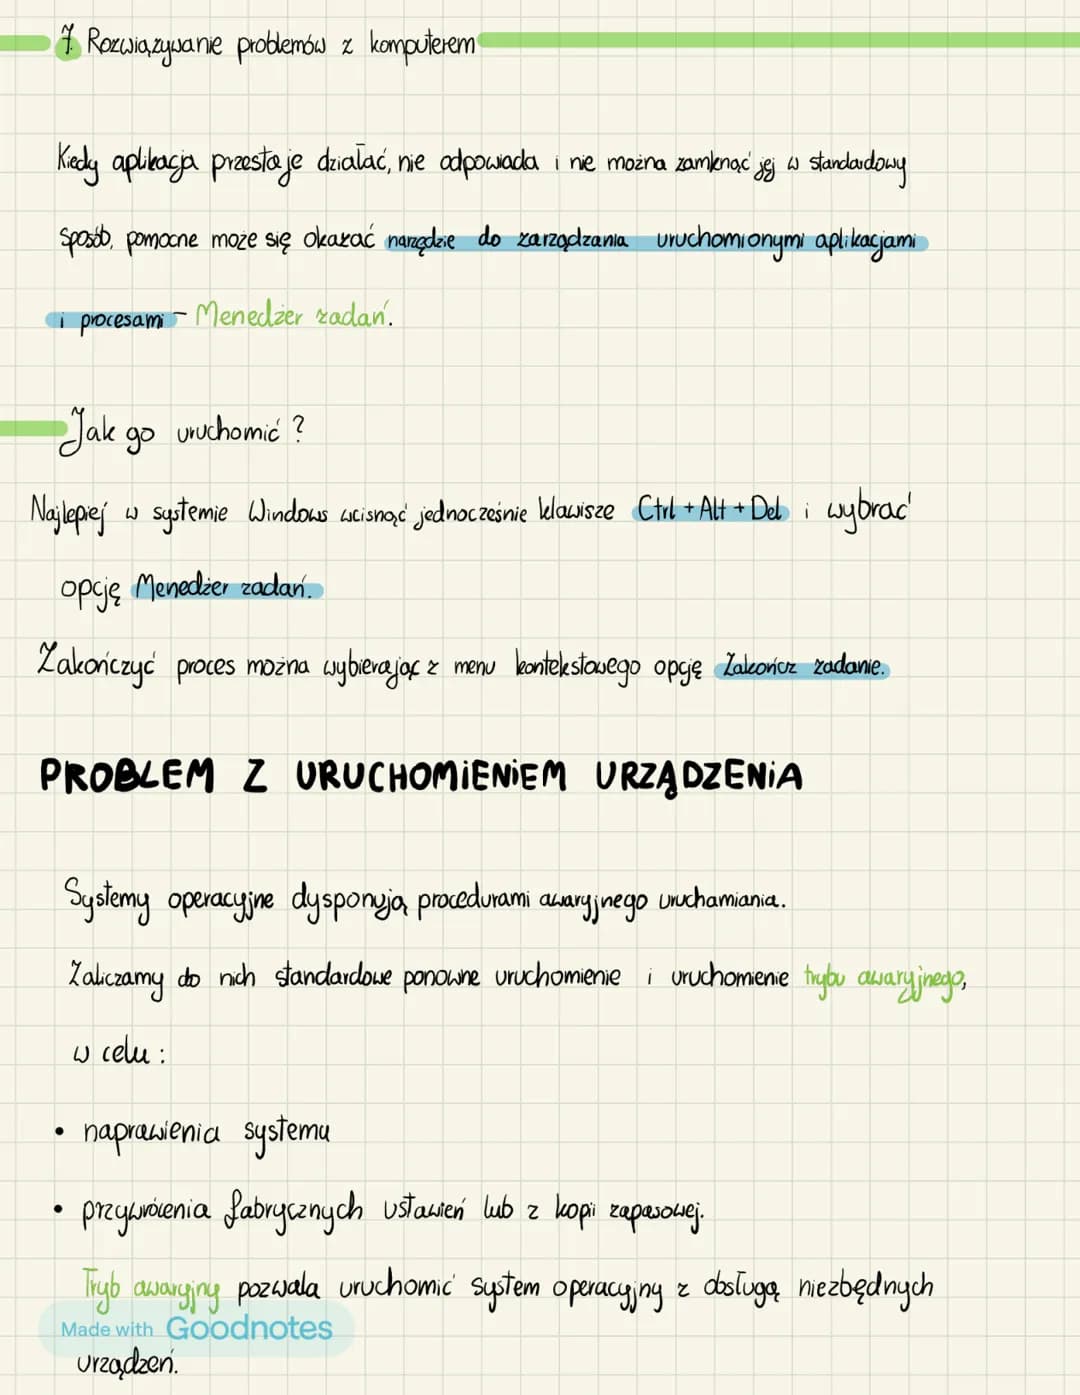 7. Rozwiązywanie problemów z komputerem
Kiedy aplikacja przestaje działać, nie odpowiada i nie można zamknąć jej w standardowy
sposób, pomocne może się okazać narzędzie do zarządzania uruchomionymi aplikacjami
i procesami - Menedżer zadań.
Jak go uruchomić ?
Najlepiej w systemie Windows wcisnąć jednocześnie klawisze Ctrl + Alt + Del i wybrać
opcję Menedżer zadań.
Zakończyć proces można wybierając z menu kontekstowego opcję Zakończ zadanie.
PROBLEM Z URUCHOMIENIEM URZĄDZENIA
Systemy operacyjne dysponują procedurami awaryjnego uruchamiania.
Zaliczamy do nich standardowe ponowne uruchomienie i uruchomienie trybu awaryjnego,
w celu :
• naprawienia systemu
• przywrócenia fabrycznych ustawień lub z kopii zapasowej.
Tryb awaryjny pozwala uruchomić system operacyjny z obsługą niezbędnych
Made with Goodnotes
urządzeń.